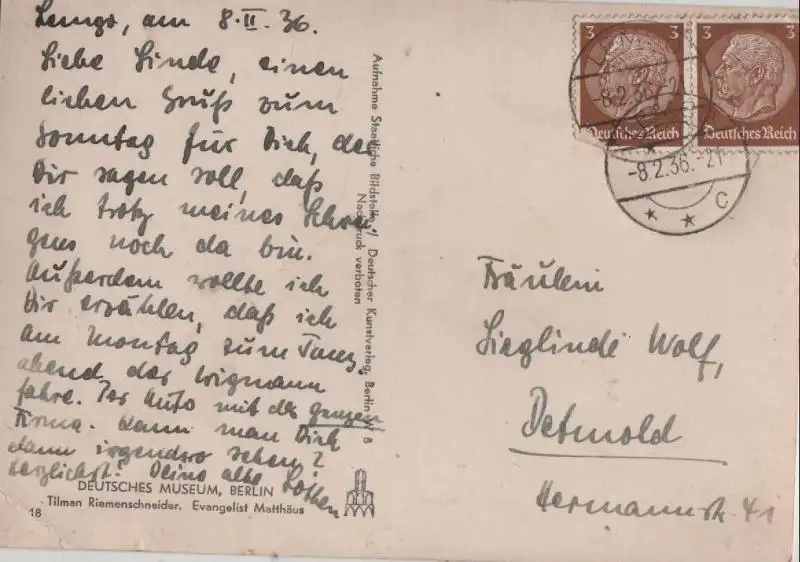 Lemgo, am 8.II.36.
Liebe Linde, einen
lieben Gruß zum
Sonntag für Dich, der
Dir sagen soll, daß
ich trotz meines Schwei
gens noch da bin.
Außerdem wollte ich
Dir erzählen, daß ich
am Montag zum Tanz
abend der Wigmann
fahre. Per Auto mit der ganzen
Firma. Kann man Dich
dann irgendwo sehen?
Herzlichst! Deine alte
DEUTSCHES MUSEUM, BERLIN
Tilman Riemenschneider. Evangelist Matthäus
18
Aufnahme Staatliche Bildstelle / Deutscher Kunstverlag, Berlin W 8
Nachdruck verboten
3 3
Deutsches Reich Deutsches Reich
-8.2.36.-21
C
Fräulein
Sieglinde Wolf,
Detmold
Hermannstr. 41